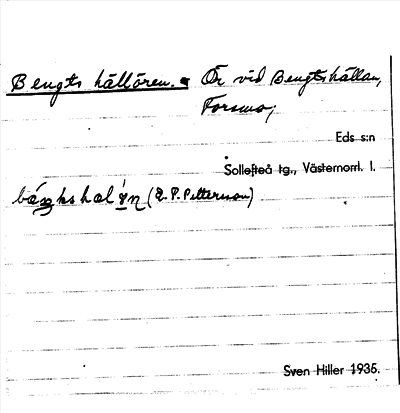 Bengts hällören. Ör vid Bengtshällan,
Forsmo,
Eds s:n
Sollefteå tg., Västernorrl. l.
(E. P. Pettersson)
Sven Hiller 1935.